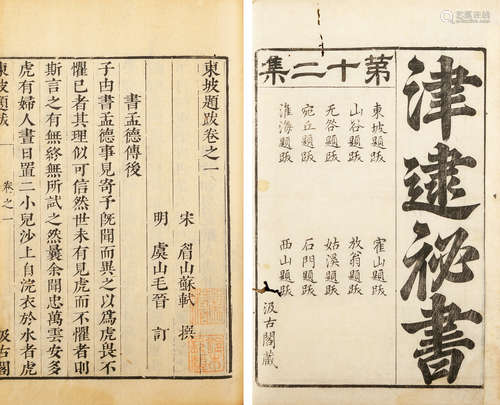 津逮祕書
第十二集
東坡題跋
山谷題跋
无咎題跋
宛丘題跋
淮海題跋
霍山題跋
放翁題跋
姑溪題跋
石門題跋
西山題跋
汲古閣藏
東坡題跋卷之一
宋 眉山蘇軾 撰
明 虞山毛晉 訂
書孟德傳後
子由書孟德事見寄予旣聞而異之以爲虎畏不
懼已者其理似可信然世未有見虎而不懼者則
斯言之有無終無所試之然曩余聞忠萬雲安多
虎有婦人晝日置二小兒沙上自浣衣於水者虎
東坡題跋 卷之一 汲古閣